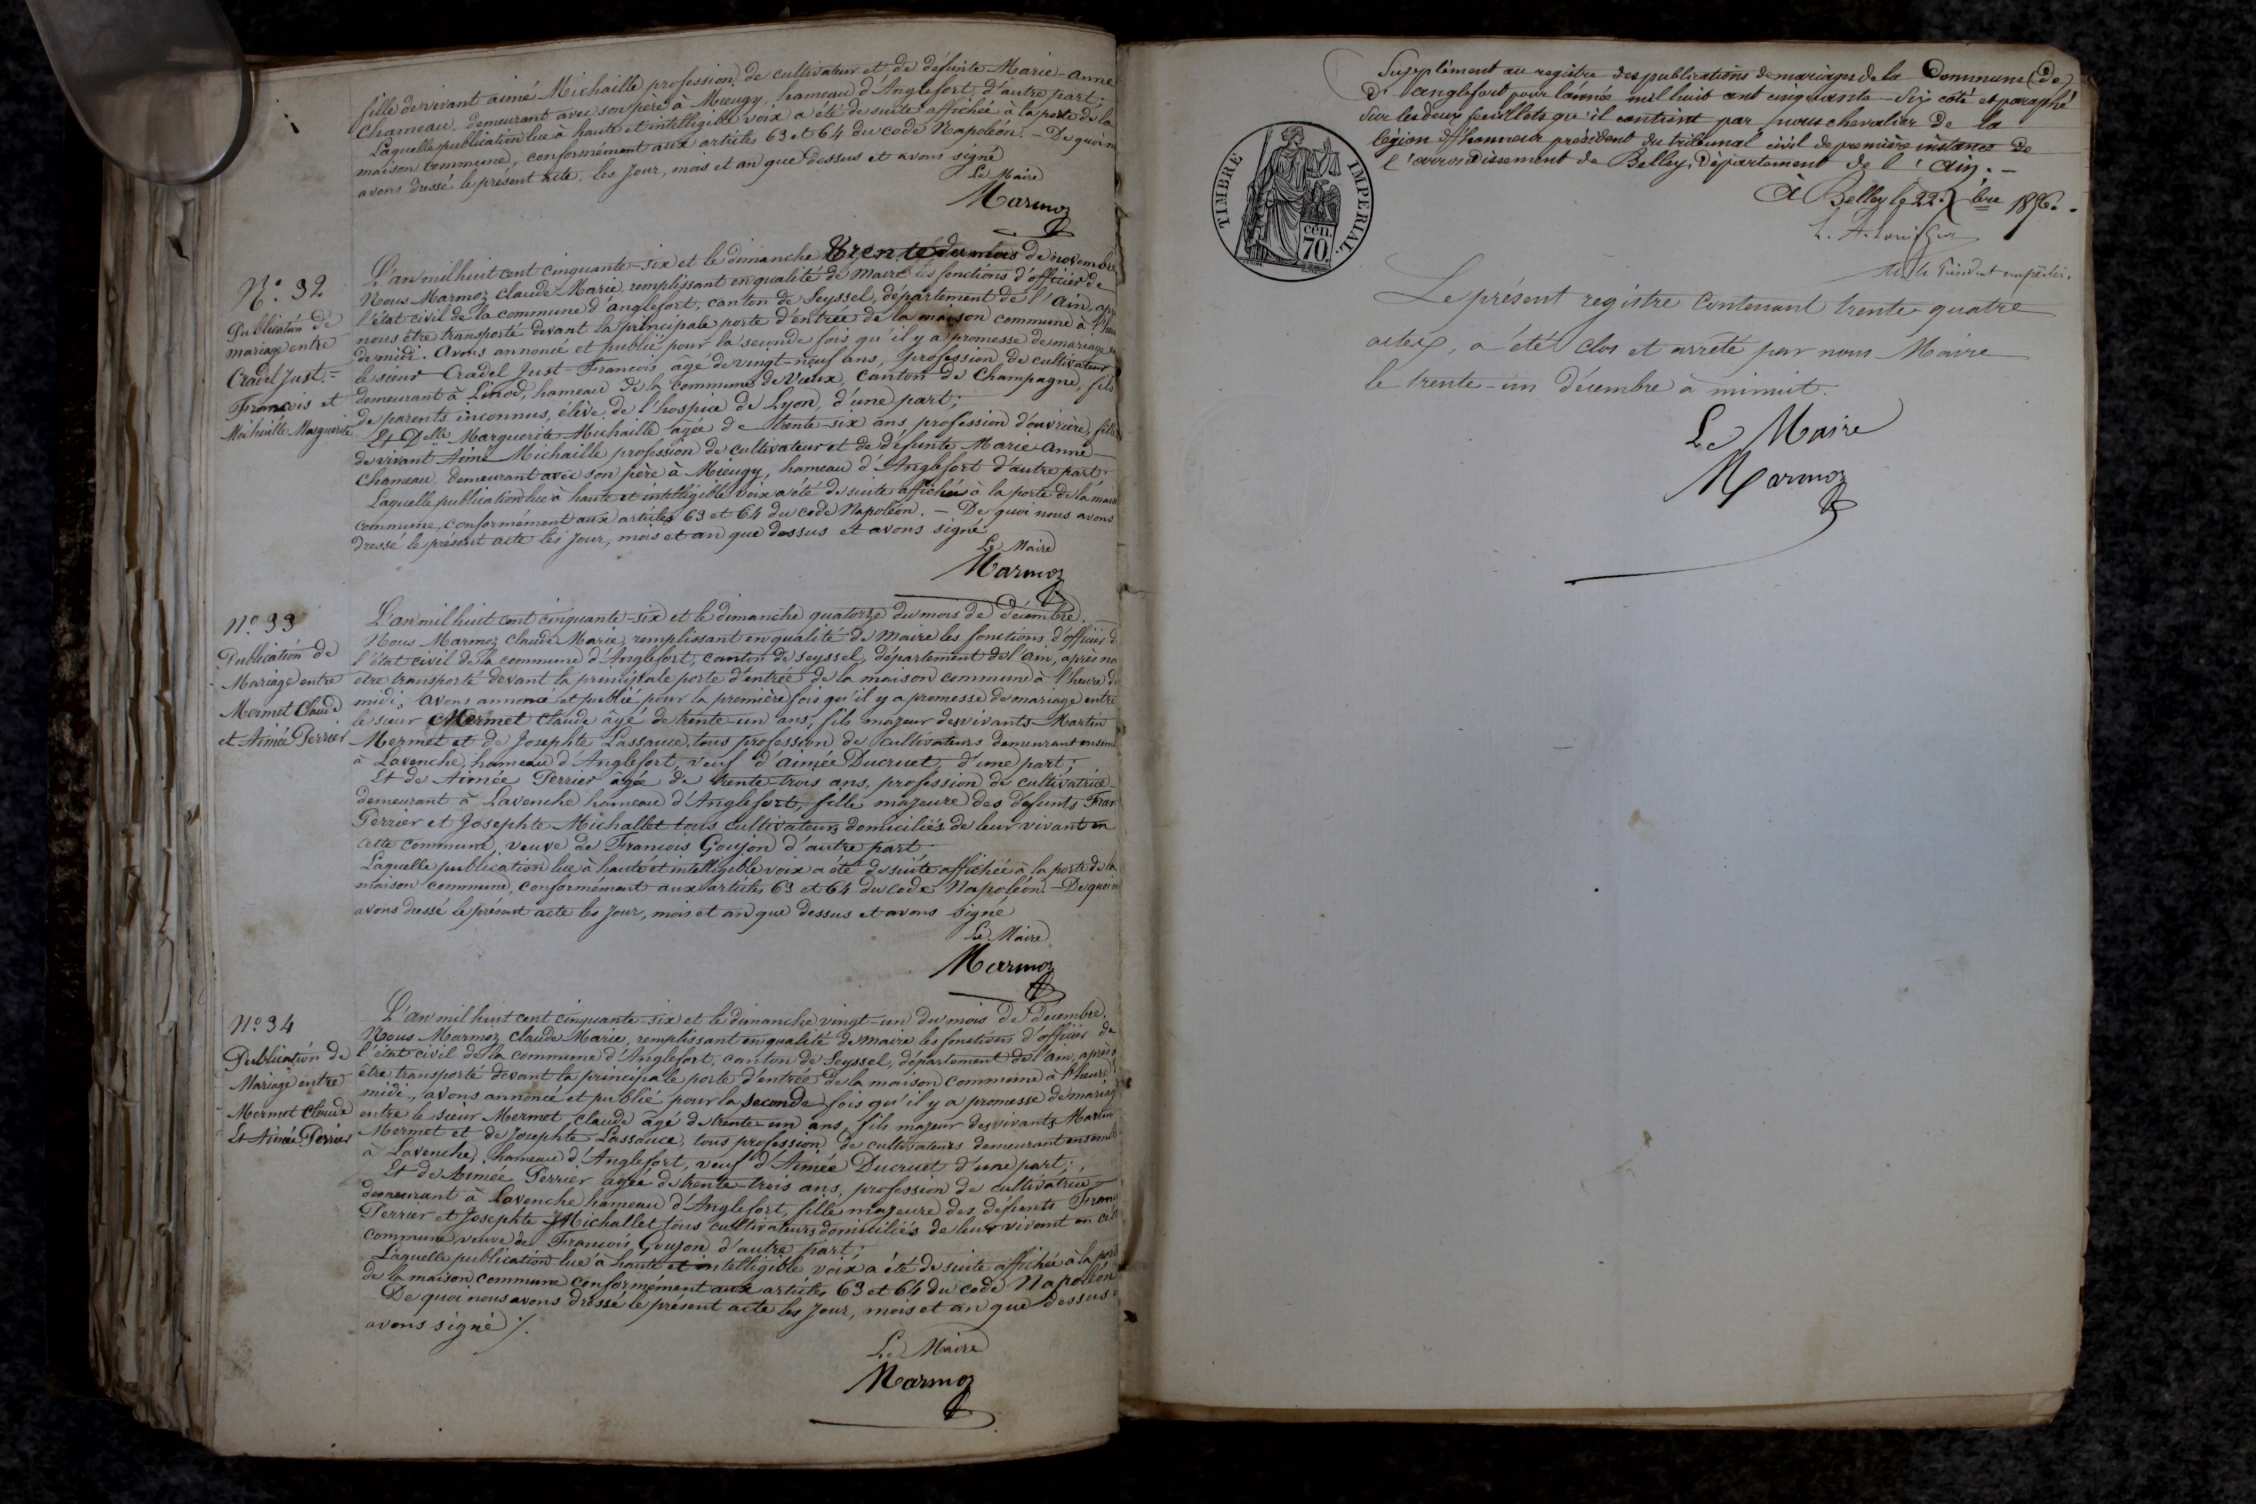 fille de vivant aimé Michaille profession de cultivateur et de défunte Marie-anne
Chameau demeurant avec son père à Mieugy, hameau d'Anglefort d'autre part;
Laquelle publication lue à haute et intelligible voix a été de suite affichée à la porte de la
maison Commune, conformément aux articles 63 et 64 du code Napoléon. — De quoi n
avons dressé le présent acte les jour, mois et an que dessus et avons signé
Le Maire
Marmoz
N.º 32
Publication de
mariage entre
Cradel Just =
François et
Michaille Marguerite
L'an mil huit cent cinquante-six et le dimanche trente du mois de novembre
Nous Marmoz Claude-Marie remplissant en qualité de Maire les fonctions d'officier de
l'état civil de la commune d'anglefort, canton de Seyssel, département de l'Ain, apr
nous être transporté devant la principale porte d'entrée de la maison commune à l'heu
de midi. Avons annoncé et publié pour la seconde fois qu'il y a promesse de mariage
le sieur Cradel Just-François âgé de vingt-neuf ans, profession de cultivateur
demeurant à Linod, hameau de la commune de Vieux, canton de Champagne, fils
de parents inconnus, élève de l'hospice de Lyon, d'une part;
Et Delle Marguerite Michaille âgée de trente-six ans, profession d'ouvrière, fille
de vivant Aimé Michaille profession de cultivateur et de défunte Marie Anne
Chameau demeurant avec son père à Mieugy, hameau d'Anglefort d'autre part.
Laquelle publication lue à haute et intelligible voix a été de suite affichée à la porte de la mais
commune, conformément aux articles 63 et 64 du code Napoléon. — De quoi nous avons
dressé le présent acte les jour, mois et an que dessus et avons signé
Le Maire
Marmoz
Nº 33
Publication de
Mariage entre
Mermet Claude
et Aimée Perrier
L'an mil huit cent cinquante-six et le dimanche quatorze du mois de décembre.
Nous Marmoz Claude Marie, remplissant en qualité de Maire les fonctions d'officier d
l'état civil de la commune d'Anglefort, canton de Seyssel, département de l'ain, après no
etre transporté devant la principale porte d'entrée de la maison commune à l'heure de
midi, avons annoncé et publié pour la première fois qu'il y a promesse de mariage entre
le sieur Mermet Claude âgé de trente-un ans, fils majeur des vivants Martin
Mermet et de Josephte Lassauce, tous profession de cultivateurs demeurant ensem
à Lavenche, hameau d'Anglefort, veuf d'aimée Ducruet, d'une part;
Et de Aimée Perrier âgée de trente-trois ans, profession de cultivatrice
demeurant à Lavenche hameau d'Anglefort, fille majeure des défunts Fran
Perrier et Josephte Michallet tous cultivateurs domiciliés de leur vivant en
cette commune, veuve de François Goujon d'autre part
Laquelle publication lue à haute et intelligible voix a été de suite affichée à la porte de la
maison commune, conformément aux articles 63 et 64 du Code Napoléon. — De quoi n
avons dressé le présent acte les jour, mois et an que dessus et avons signé
Le Maire
Marmoz
Nº 34
Publication de
Mariage entre
Mermet Claude
Et Aimée Perrier
L'an mil huit cent cinquante-six et le dimanche vingt-un du mois de décembre.
Nous Marmoz Claude Marie, remplissant en qualité de maire les fonctions d'officier de
l'état civil de la commune d'Anglefort, canton de Seyssel, département de l'ain, après
être transporté devant la principale porte d'entrée de la maison commune à l'heure
midi, avons annoncé et publié pour la seconde fois qu'il y a promesse de mariag
entre le sieur Mermet Claude âgé de trente-un ans, fils majeur des vivants Martin
Mermet et de Josephte Lassauce, tous profession de cultivateurs demeurant ensemb
à Lavenche, hameau d'Anglefort, veuf d'Aimée Ducruet d'une part;
Et de Aimée Perrier âgée de trente-trois ans, profession de cultivatrice
demeurant à Lavenche hameau d'Anglefort, fille majeure des défunts Fran
Perrier et Josephte Michallet tous cultivateurs domiciliés de leur vivant en cett
commune, veuve de François Goujon d'autre part;
Laquelle publication lue à haute et intelligible voix a été de suite affichée à la port
de la maison commune conformément aux articles 63 et 64 du code Napoléon
De quoi nous avons dressé le présent acte les jour, mois et an que dessus
avons signé ./.
Le Maire
Marmoz
Supplément au registre des publications de mariages de la Commune (de)
d'anglefort pour l'année mil huit cent cinquante-six coté et paraphé
sur les deux feuillets qu'il contient par nous chevalier de la
légion d'honneur président du tribunal civil de première instance de
l'arrondissement de Belley, département de l'Ain. —
à Belley le 22 Xbre 1856.
le Président empêché.
TIMBRE IMPERIAL.
CEN.
70.
Le présent registre contenant trente-quatre
actes, a été clos et arrêté par nous Maire
le trente-un décembre à minuit.
Le Maire
Marmoz